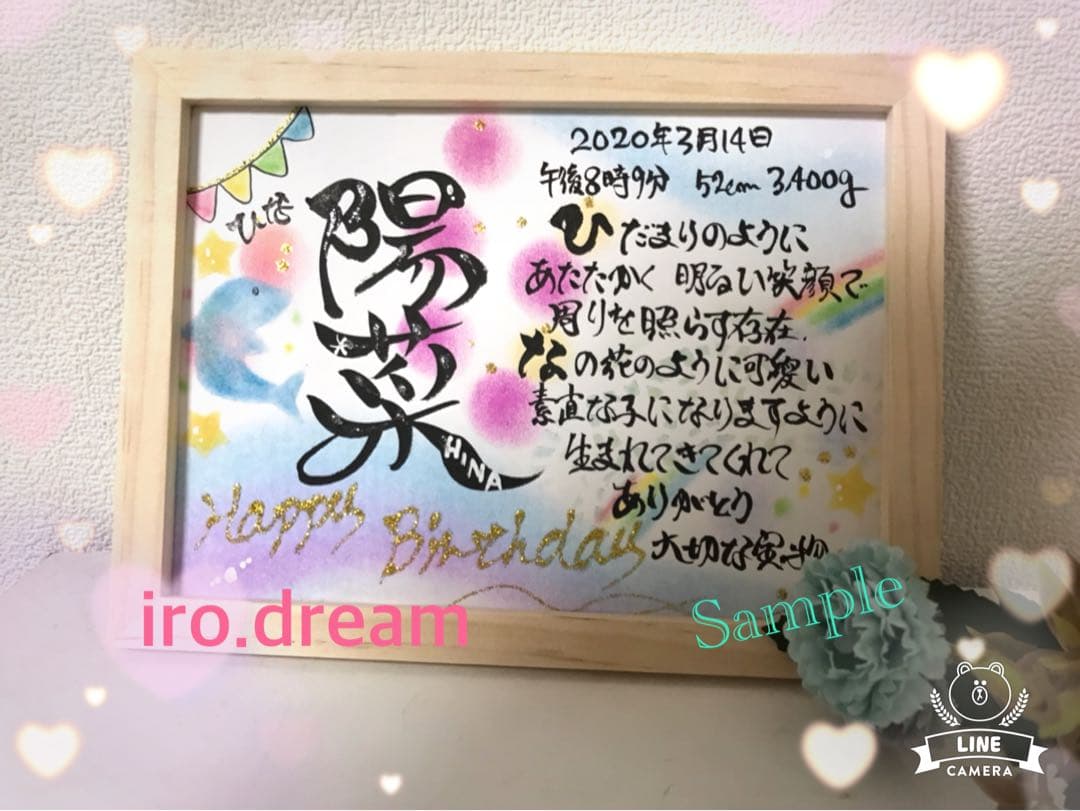 ひな
陽菜
HINA
2020年3月14日
午後8時9分 52cm 3,400g
ひだまりのように
あたたかく 明るい笑顔で
周りを照らす存在.
なの花のように可愛い
素直な子になりますように
生まれてきてくれて
ありがとう
大切な宝物
Happy Birthday
iro.dream
Sample
LINE
CAMERA